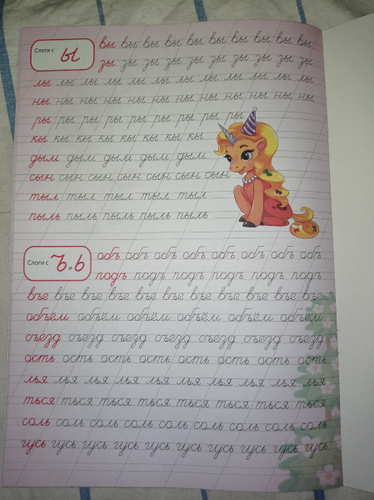 Слоги с ы
вы вы вы вы вы вы вы вы вы вы
зы зы зы зы зы зы зы зы зы зы
лы лы лы лы лы лы лы лы лы лы лы лы
ны ны ны ны ны ны ны ны ны ны ны ны
ры ры ры ры ры ры ры ры ры
кы кы кы кы кы кы кы кы
дым дым дым дым дым
сын сын сын сын сын сын сын
тыл тыл тыл тыл тыл
пыль пыль пыль пыль пыль
Слоги с ъ и ь
объ объ объ объ объ объ объ объ
подъ подъ подъ подъ подъ подъ
въе въе въе въе въе въе въе въе въе въе въе
объём объём объём объём объём объём
съезд съезд съезд съезд съезд съезд съезд
ость ость ость ость ость ость ость ость
лья лья лья лья лья лья лья лья лья лья
ться ться ться ться ться ться ться ться
соль соль соль соль соль соль соль соль
гусь гусь гусь гусь гусь гусь гусь гусь гусь